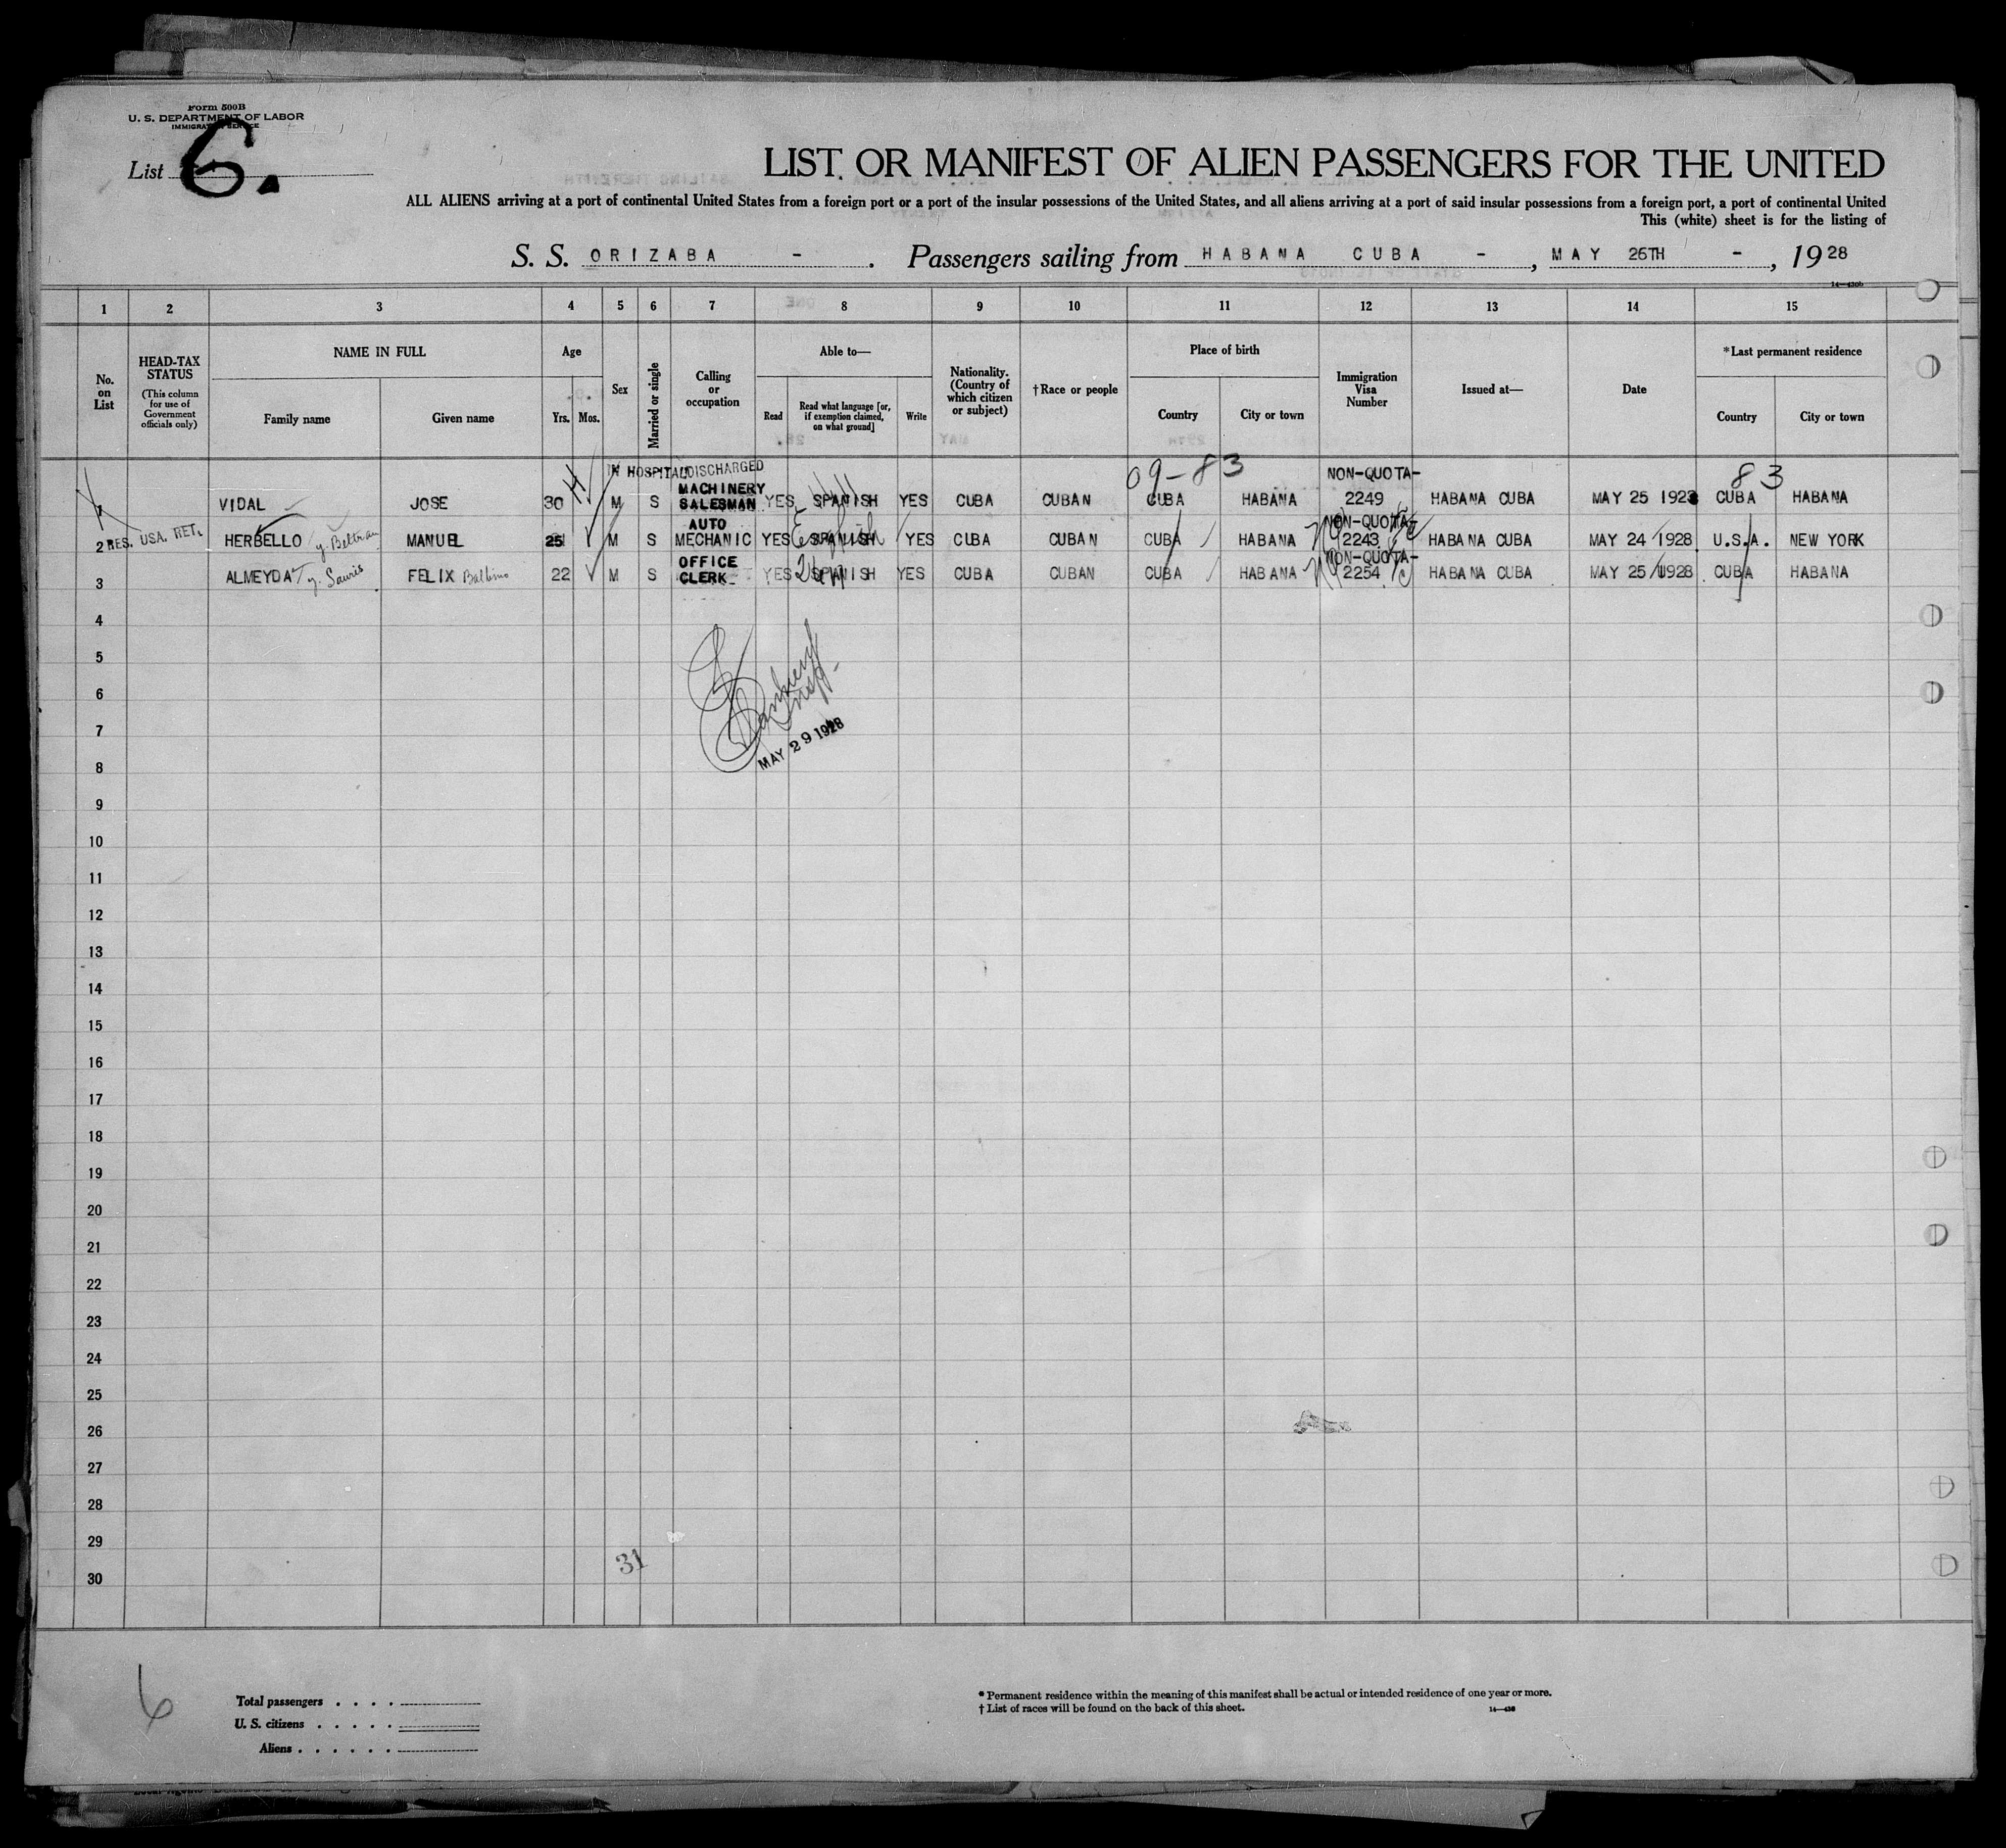 Form 500B
U. S. DEPARTMENT OF LABOR
IMMIGRATION SERVICE
List 6.
LIST OR MANIFEST OF ALIEN PASSENGERS FOR THE UNITED
ALL ALIENS arriving at a port of continental United States from a foreign port or a port of the insular possessions of the United States, and all aliens arriving at a port of said insular possessions from a foreign port, a port of continental United
This (white) sheet is for the listing of
S. S. ORIZABA - . Passengers sailing from HABANA CUBA - , MAY 26TH - , 1928
14—430b
1 2 3 4 5 6 7 8 9 10 11 12 13 14 15
No. on List
HEAD-TAX STATUS
(This column for use of Government officials only)
NAME IN FULL
Family name Given name
Age
Yrs. Mos.
Sex
Married or single
Calling or occupation
Able to—
Read
Read what language [or, if exemption claimed, on what ground]
Write
Nationality. (Country of which citizen or subject)
†Race or people
Place of birth
Country City or town
Immigration Visa Number
Issued at—
Date
*Last permanent residence
Country City or town
IN HOSPITAL DISCHARGED 09-83 NON-QUOTA- 83
1 VIDAL JOSE 30 M S MACHINERY SALESMAN YES SPANISH YES CUBA CUBAN CUBA HABANA 2249 HABANA CUBA MAY 25 1928 CUBA HABANA
2 RES. USA. RET. HERBELLO y. Beltran MANUEL 25 M S AUTO MECHANIC YES SPANISH English YES CUBA CUBAN CUBA HABANA NON-QUOTA- 2243 HABANA CUBA MAY 24 1928 U.S.A. NEW YORK
3 ALMEYDA y. Sauris FELIX Balbino 22 M S OFFICE CLERK- YES SPANISH YES CUBA CUBAN CUBA HABANA NON-QUOTA- 2254 HABANA CUBA MAY 25 1928 CUBA HABANA
4
5
6
7
MAY 29 1928
8
9
10
11
12
13
14
15
16
17
18
19
20
21
22
23
24
25
26
27
28
29
31
30
6
Total passengers . . . .
U. S. citizens . . . . .
Aliens . . . . . .
* Permanent residence within the meaning of this manifest shall be actual or intended residence of one year or more.
† List of races will be found on the back of this sheet.
14—430